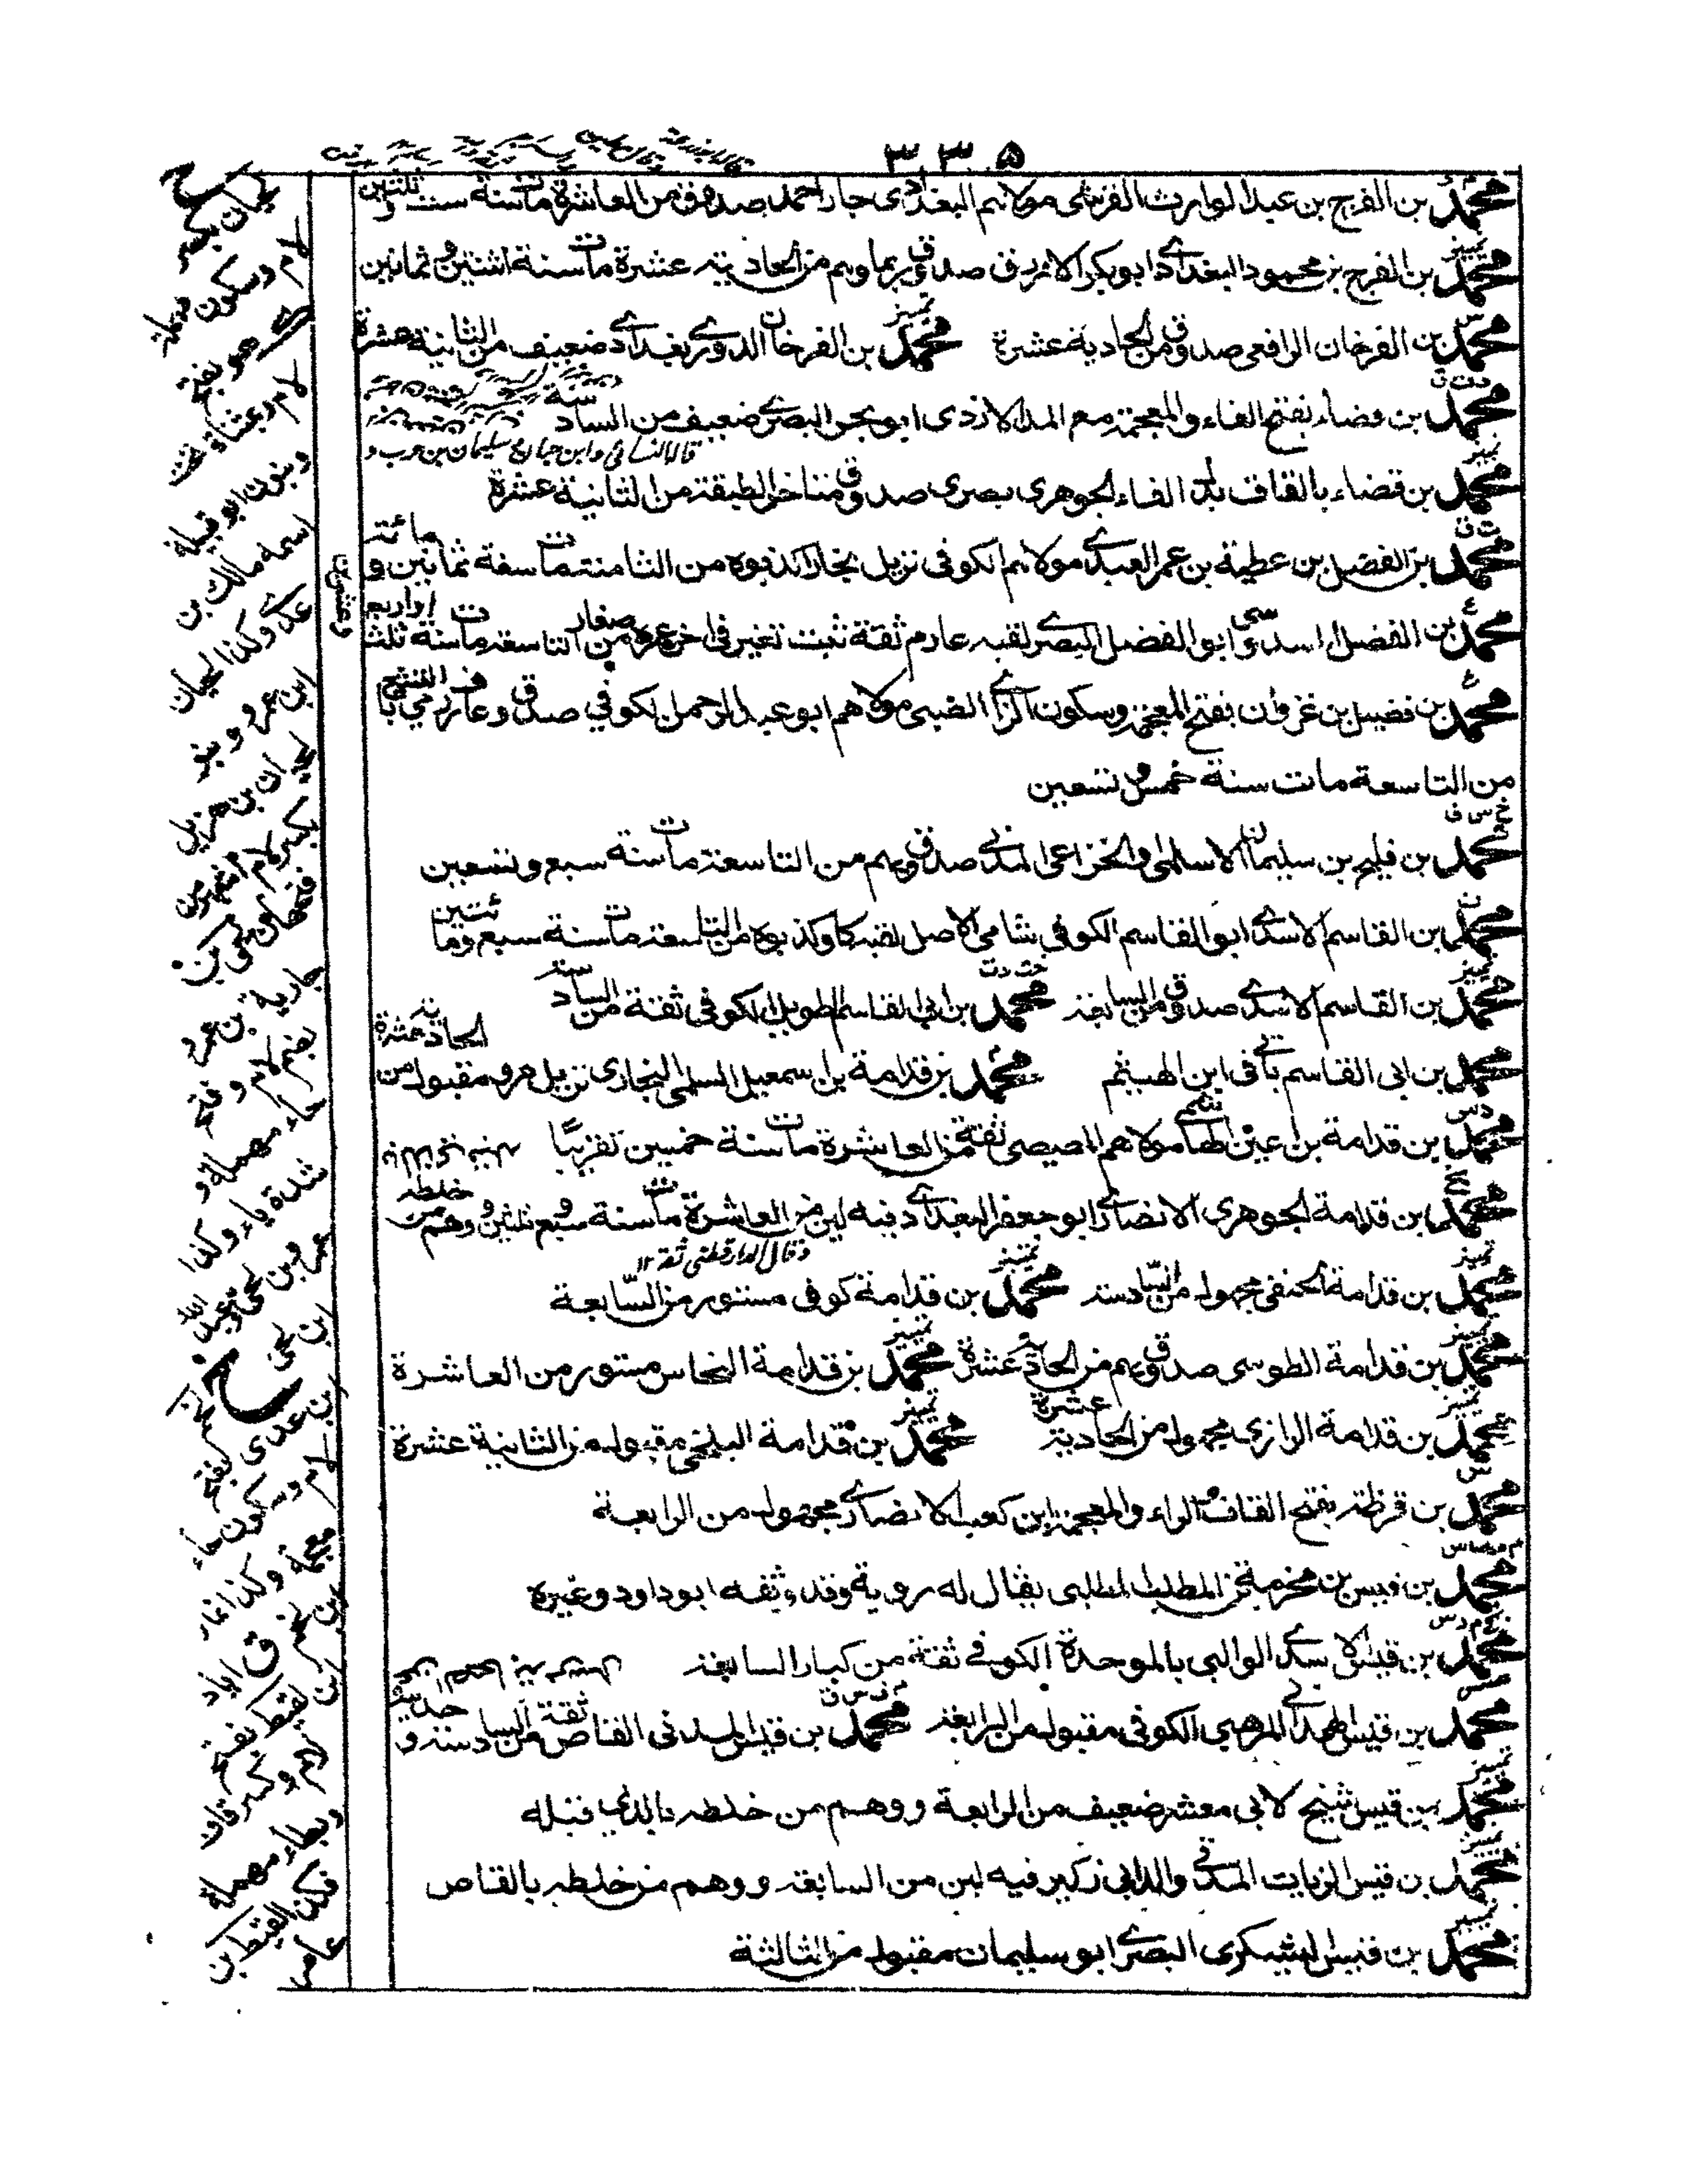 ٣٣٥
محمد بن الفرج بن عبد الوارث القرشي مولاهم البغدادي جار احمد صدوق من العاشرة مات سنة ست و ثلثين
محمد بن الفرج بن محمود البغدادي ابو بكر الازرق صدوق ربما وهم من الحادية عشرة مات سنة اثنتين و ثمانين
محمد بن الفرخان الرافعي صدوق من الحادية عشرة محمد بن الفرخان الدوري بغدادي ضعيف من الثانية عشرة
محمد بن فضاء بفتح الفاء والمعجمة مع المد الازدي ابو بحر البصري ضعيف من السادسة
قال النسائي وابن جارح سليمان بن حرب و
محمد بن قضاء بالقاف بدل الفاء الجوهري بصري صدوق متاخر الطبقة من الثانية عشرة
محمد بن الفضل بن عطية بن عمر العبدي مولاهم الكوفي نزيل بخارا كذبوه من الثامنة مات سنة ثمانين و مائة
محمد بن الفضل السدوسي ابو الفضل البصري لقبه عارم ثقة ثبت تغير في اخر عمره من صغار التاسعة مات سنة ثلث او اربع
وعشرين
محمد بن فضيل بن غزوان بفتح المعجمة وسكون الزاي الضبي مولاهم ابو عبد الرحمن الكوفي صدوق عارف رمي بالتشيع
من التاسعة مات سنة خمس و تسعين
محمد بن فليح بن سليمان الاسلمي والخزاعي المدني صدوق يهم من التاسعة مات سنة سبع وتسعين
محمد بن القاسم الاسدي ابو القاسم الكوفي شامي الاصل لقبه كاو كذبوه من التاسعة مات سنة سبع ومائتين
محمد بن القاسم الاسدي صدوق من السابعة محمد بن ابي القاسم الطويل الكوفي ثقة من السادسة
محمد بن ابي القاسم ياتي في ابن الهيثم محمد بن قدامة بن اسمعيل السلمي البخاري نزيل مرو مقبول من الحادية عشرة
محمد بن قدامة بن اعين الهاشمي مولاهم المصيصي ثقة من العاشرة مات سنة خمسين تقريبًا
محمد بن قدامة الجوهري الانصاري ابو جعفر البغدادي فيه لين من العاشرة مات سنة سبع و ثلثين ووهم من خلطه
وقال الدارقطني ثقة ١٢
محمد بن قدامة الحنفي مجهول من السادسة محمد بن قدامة كوفي مستور من السابعة
محمد بن قدامة الطوسي صدوق يهم من الحادية عشرة محمد بن قدامة النحاس مستور من العاشرة
محمد بن قدامة الرازي مجهول من الحادية عشرة محمد بن قدامة البلخي مقبول من الثانية عشرة
محمد بن قرظة بفتح القاف والراء والمعجمة ابن كعب الانصاري مجهول من الرابعة
محمد بن قيس بن مخرمة بن المطلب المطلبي يقال له روية وقد وثقه ابو داود وغيره
محمد بن قيس الاسدي الوالبي بالموحدة الكوفي ثقة من كبار السابعة
محمد بن قيس الهمداني المرهبي الكوفي مقبول من الرابعة محمد بن قيس المدني القاص ثقة من السادسة و حديثه
محمد بن قيس شيخ لابي معشر ضعيف من الرابعة ووهم من خلطه بالذي قبله
محمد بن قيس الزيات المدني والد ابي زكير فيه لين من السابعة ووهم من خلطه بالقاص
محمد بن قيس اليشكري البصري ابو سليمان مقبول من الثالثة
لحيان بكسر
لام وسكون مهملة
هو بفتح
لام و بمثناة تحت
وبنون ابو قبيلة
اسمه مالك بن
عدي وكذا لحيان
ابن عمرو و بنو
لحيان بن هزيل
بكسر لام اشهر من
فتحها لحي بن
جارية بن عمرو
بضم لام و فتح
حاء مهملة و
شدة ياء وكذا
عمرو بن لحي وعبد الله
ابن لحي
ابن عدي بفتح
لام وسكون خاء
معجمة وكذا
ابن لقيط بفتح
لام وكسر قاف
وبطاء مهملة
فكذا لقيط بن
عامر